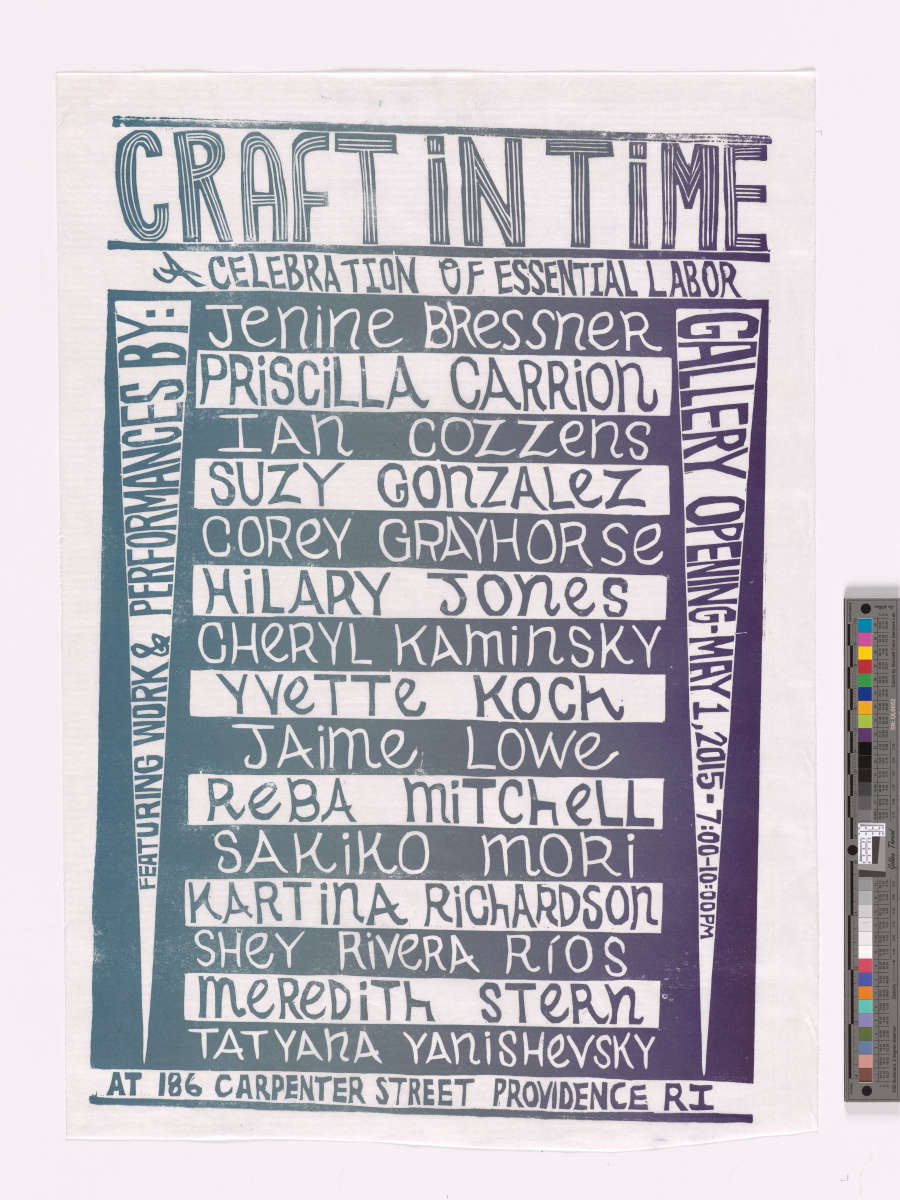 CRAFT IN TIME
A CELEBRATION OF ESSENTIAL LABOR
FEATURING WORK & PERFORMANCES BY:
JENINE BRESSNER
PRISCILLA CARRION
IAN COZZENS
SUZY GONZALEZ
COREY GRAYHORSE
HILARY JONES
CHERYL KAMINSKY
YVETTE KOCH
JAIME LOWE
REBA MITCHELL
SAKIKO MORI
KARTINA RICHARDSON
SHEY RIVERA RÍOS
MEREDITH STERN
TATYANA YANISHEVSKY
GALLERY OPENING - MAY 1, 2015 • 7:00-10:00PM
AT 186 CARPENTER STREET PROVIDENCE RI